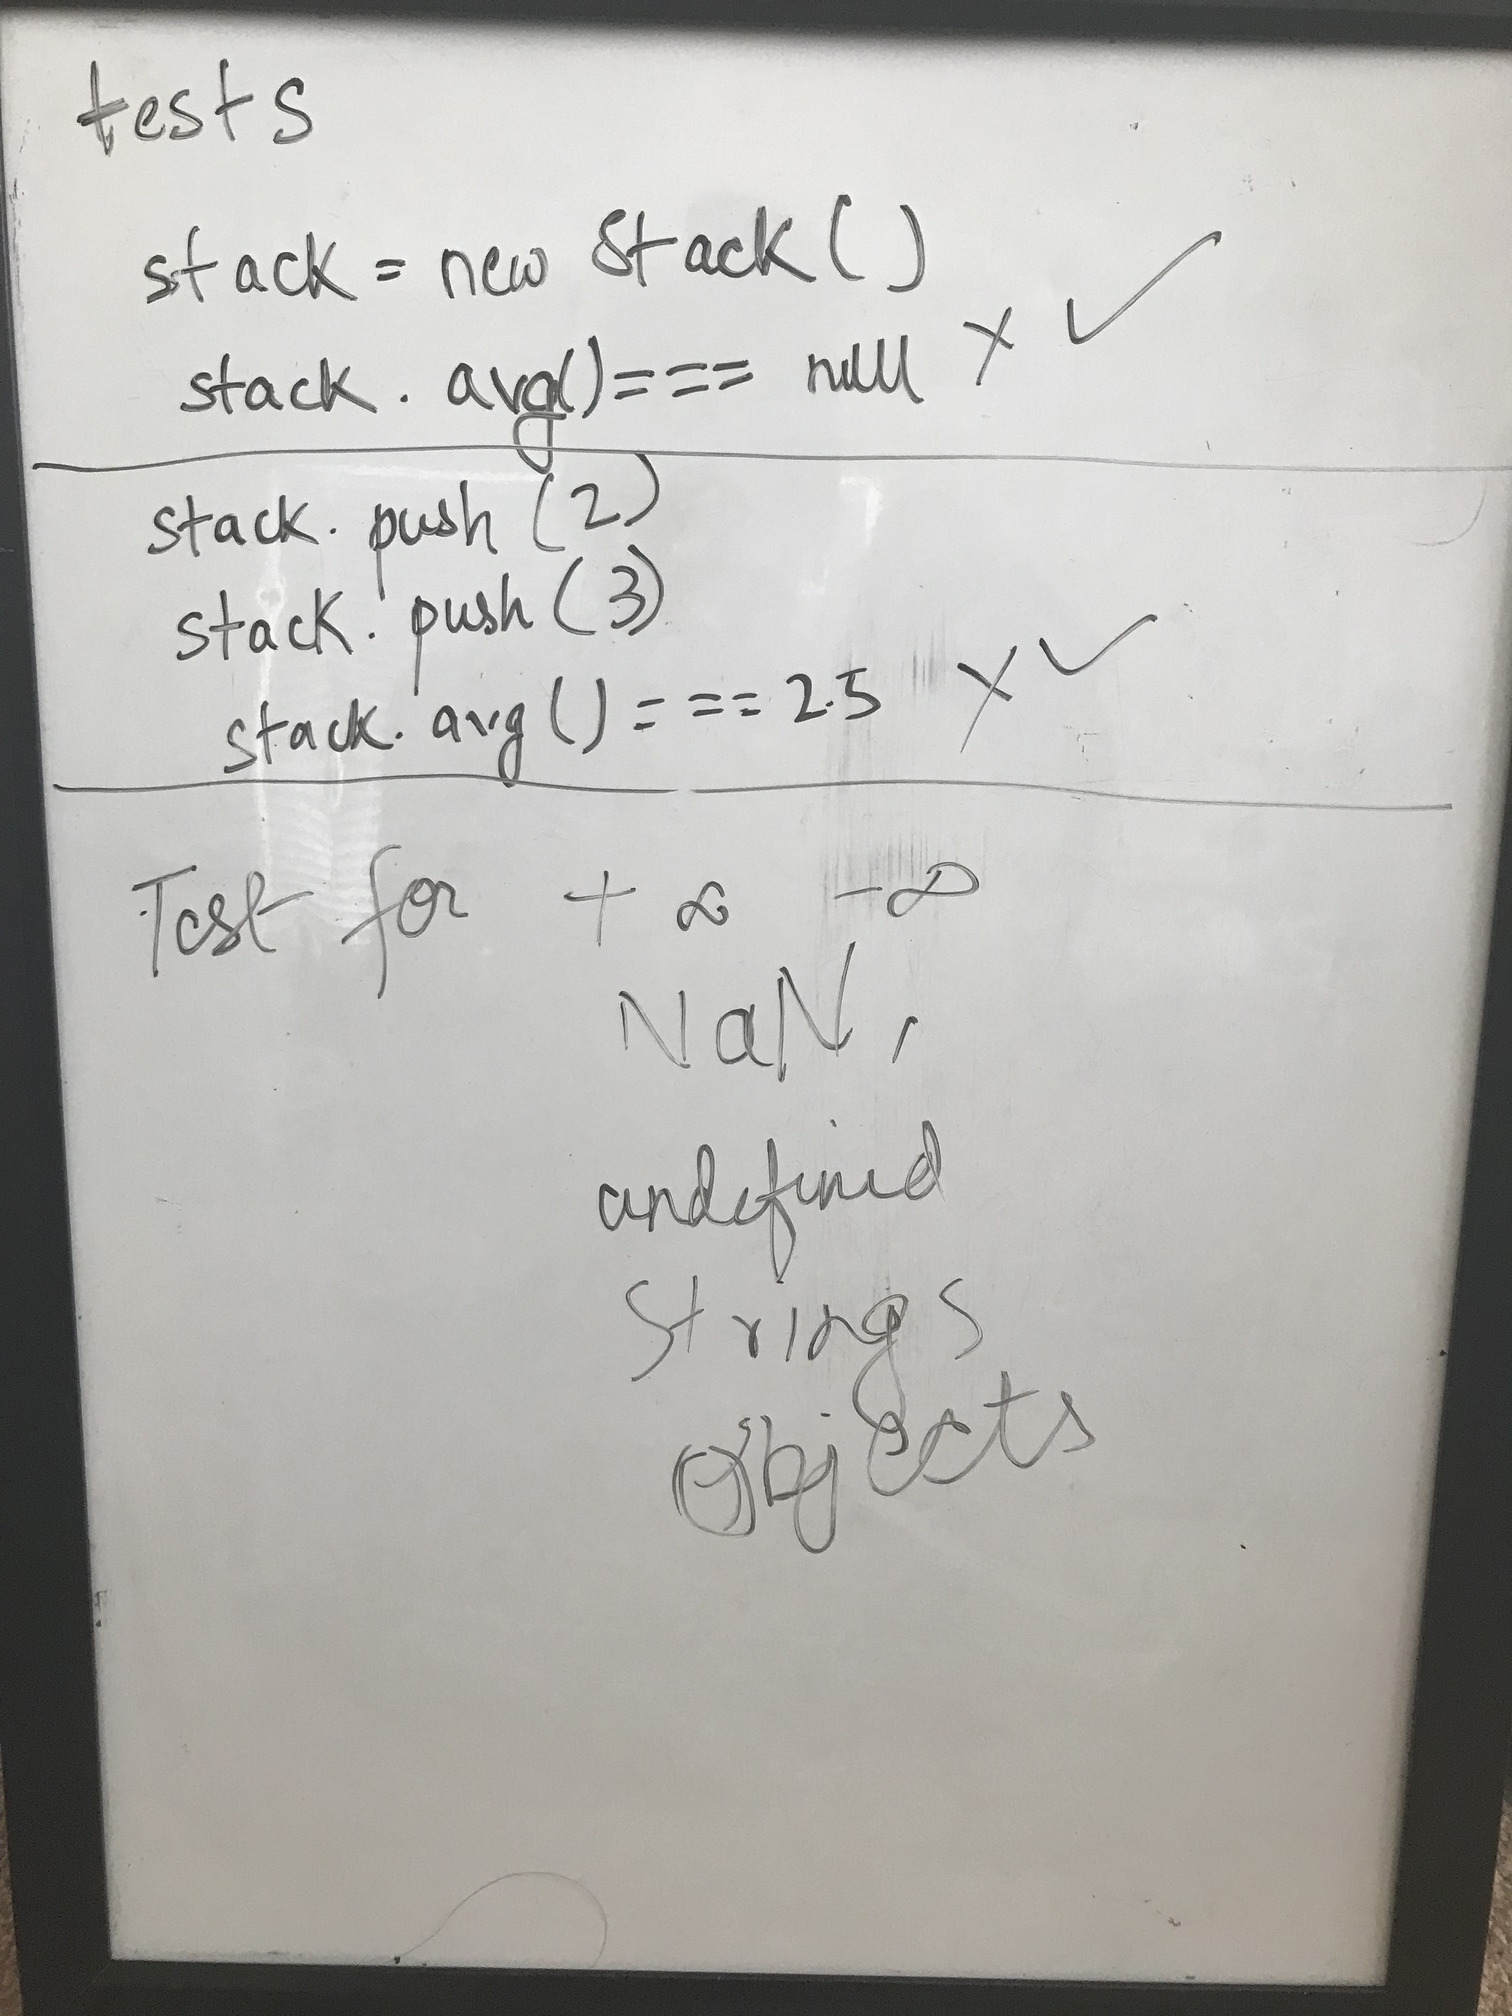 tests
stack = new Stack()
stack.avg() === null × ✓
stack.push(2)
stack.push(3)
stack.avg() === 2.5 × ✓
Test for + ∞ -∞
NaN,
undefined
Strings
Objects